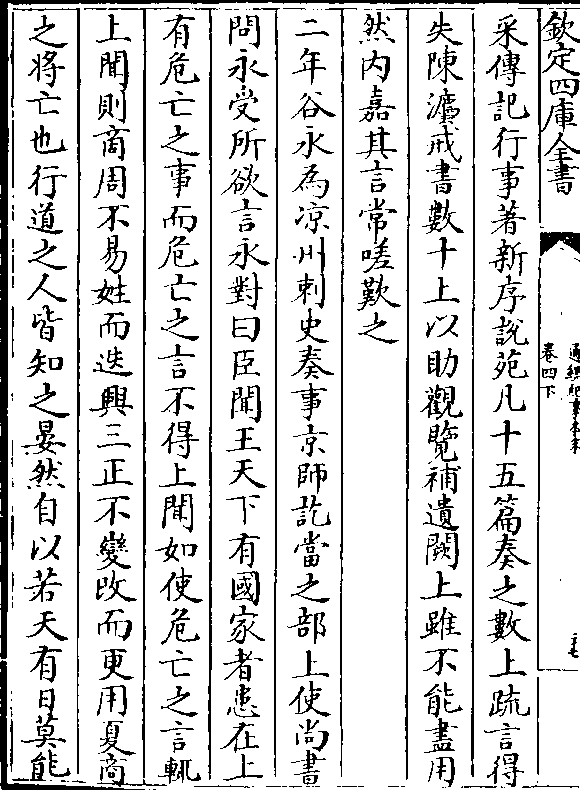 欽定四庫全書
通鑑紀事本末
卷四下
采傳記行事著新序說苑凡十五篇奏之數上疏言得
失陳灋戒書數十上以助觀覽補遺闕上雖不能盡用
然内嘉其言常嗟歎之
二年谷永為凉州刺史奏事京師訖當之部上使尚書
問永受所欲言永對曰臣聞王天下有國家者患在上
有危亡之事而危亡之言不得上聞如使危亡之言輒
上聞則商周不易姓而迭興三正不變改而更用夏商
之將亡也行道之人皆知之晏然自以若天有日莫能